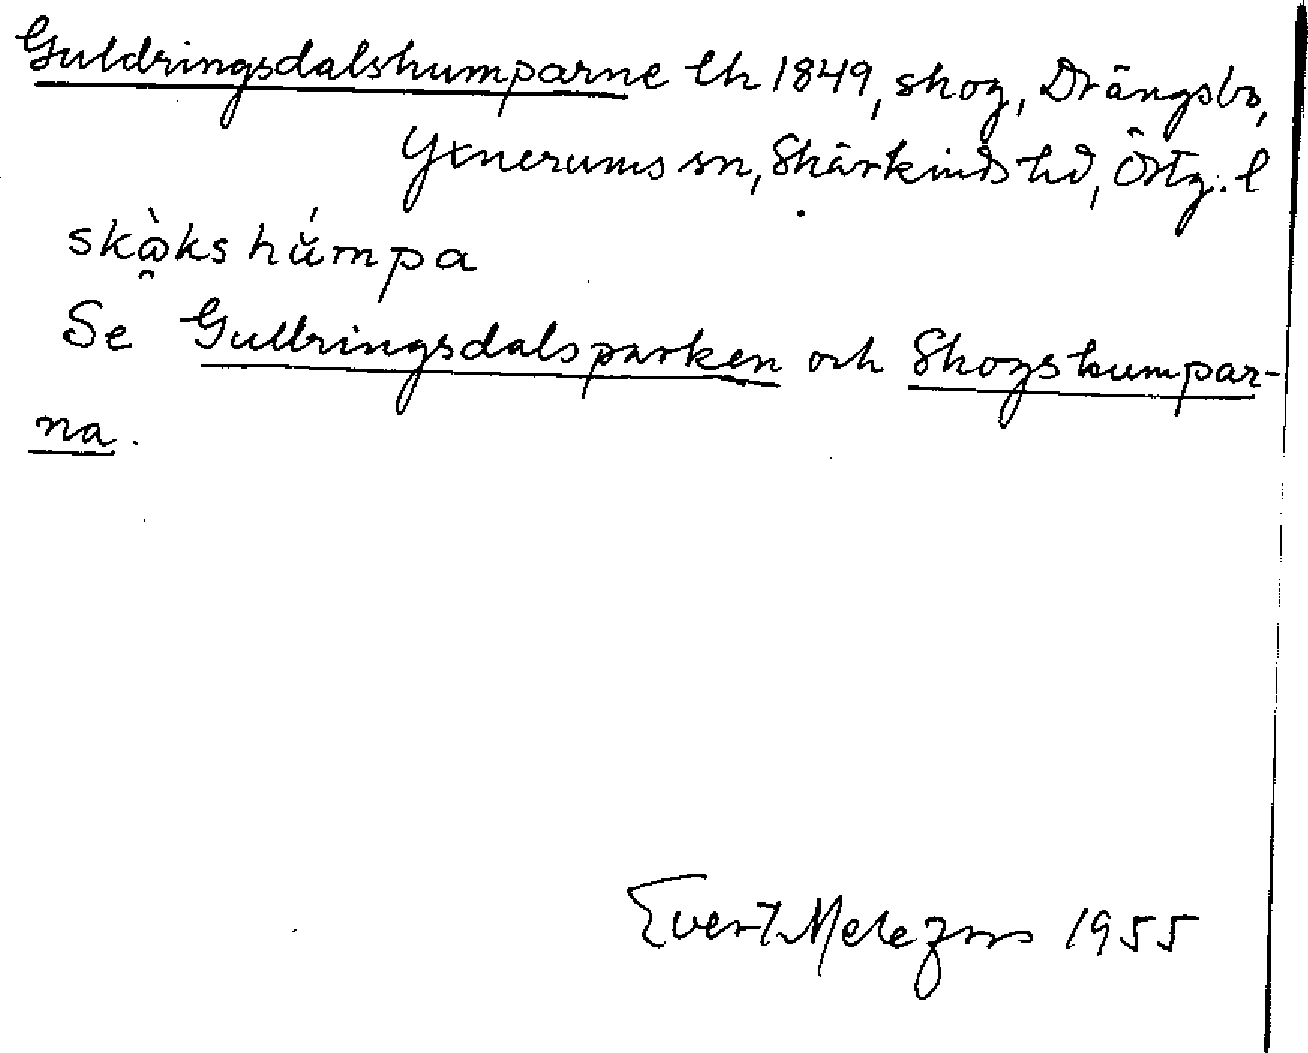 Guldringsdalshumparne lh 1849, skog, Drängsbo,
Yxnerums sn, Skärkinds hd, Östg. l
skò̯ks hǔ́mpa
Se Gullringsdalsparken och Skogshumpar-
na.
Evert 1955